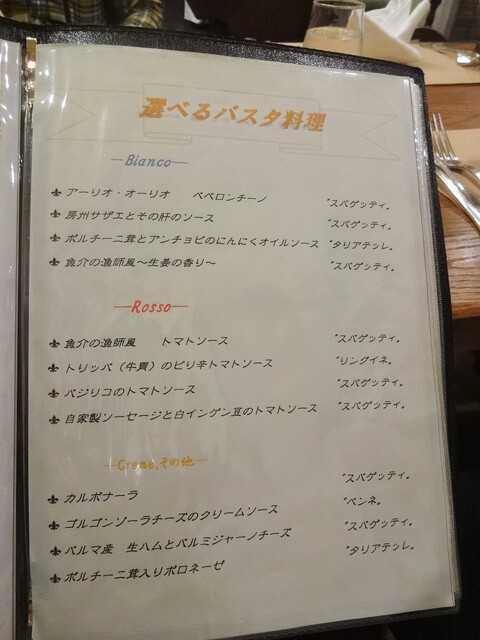 選べるパスタ料理
―Bianco―
アーリオ・オーリオ　ペペロンチーノ　"スパゲッティ。
房州サザエとその肝のソース　"スパゲッティ。
ポルチーニ茸とアンチョビのにんにくオイルソース　"タリアテッレ。
魚介の漁師風～生姜の香り～　"スパゲッティ。
―Rosso―
魚介の漁師風　トマトソース　"スパゲッティ。
トリッパ（牛胃）のピリ辛トマトソース　"リングイネ。
バジリコのトマトソース　"スパゲッティ。
自家製ソーセージと白インゲン豆のトマトソース　"スパゲッティ。
―Creme、その他―
カルボナーラ　"スパゲッティ。
ゴルゴンゾーラチーズのクリームソース　"ペンネ。
パルマ産　生ハムとパルミジャーノチーズ　"スパゲッティ。
ポルチーニ茸入りボロネーゼ　"タリアテッレ。